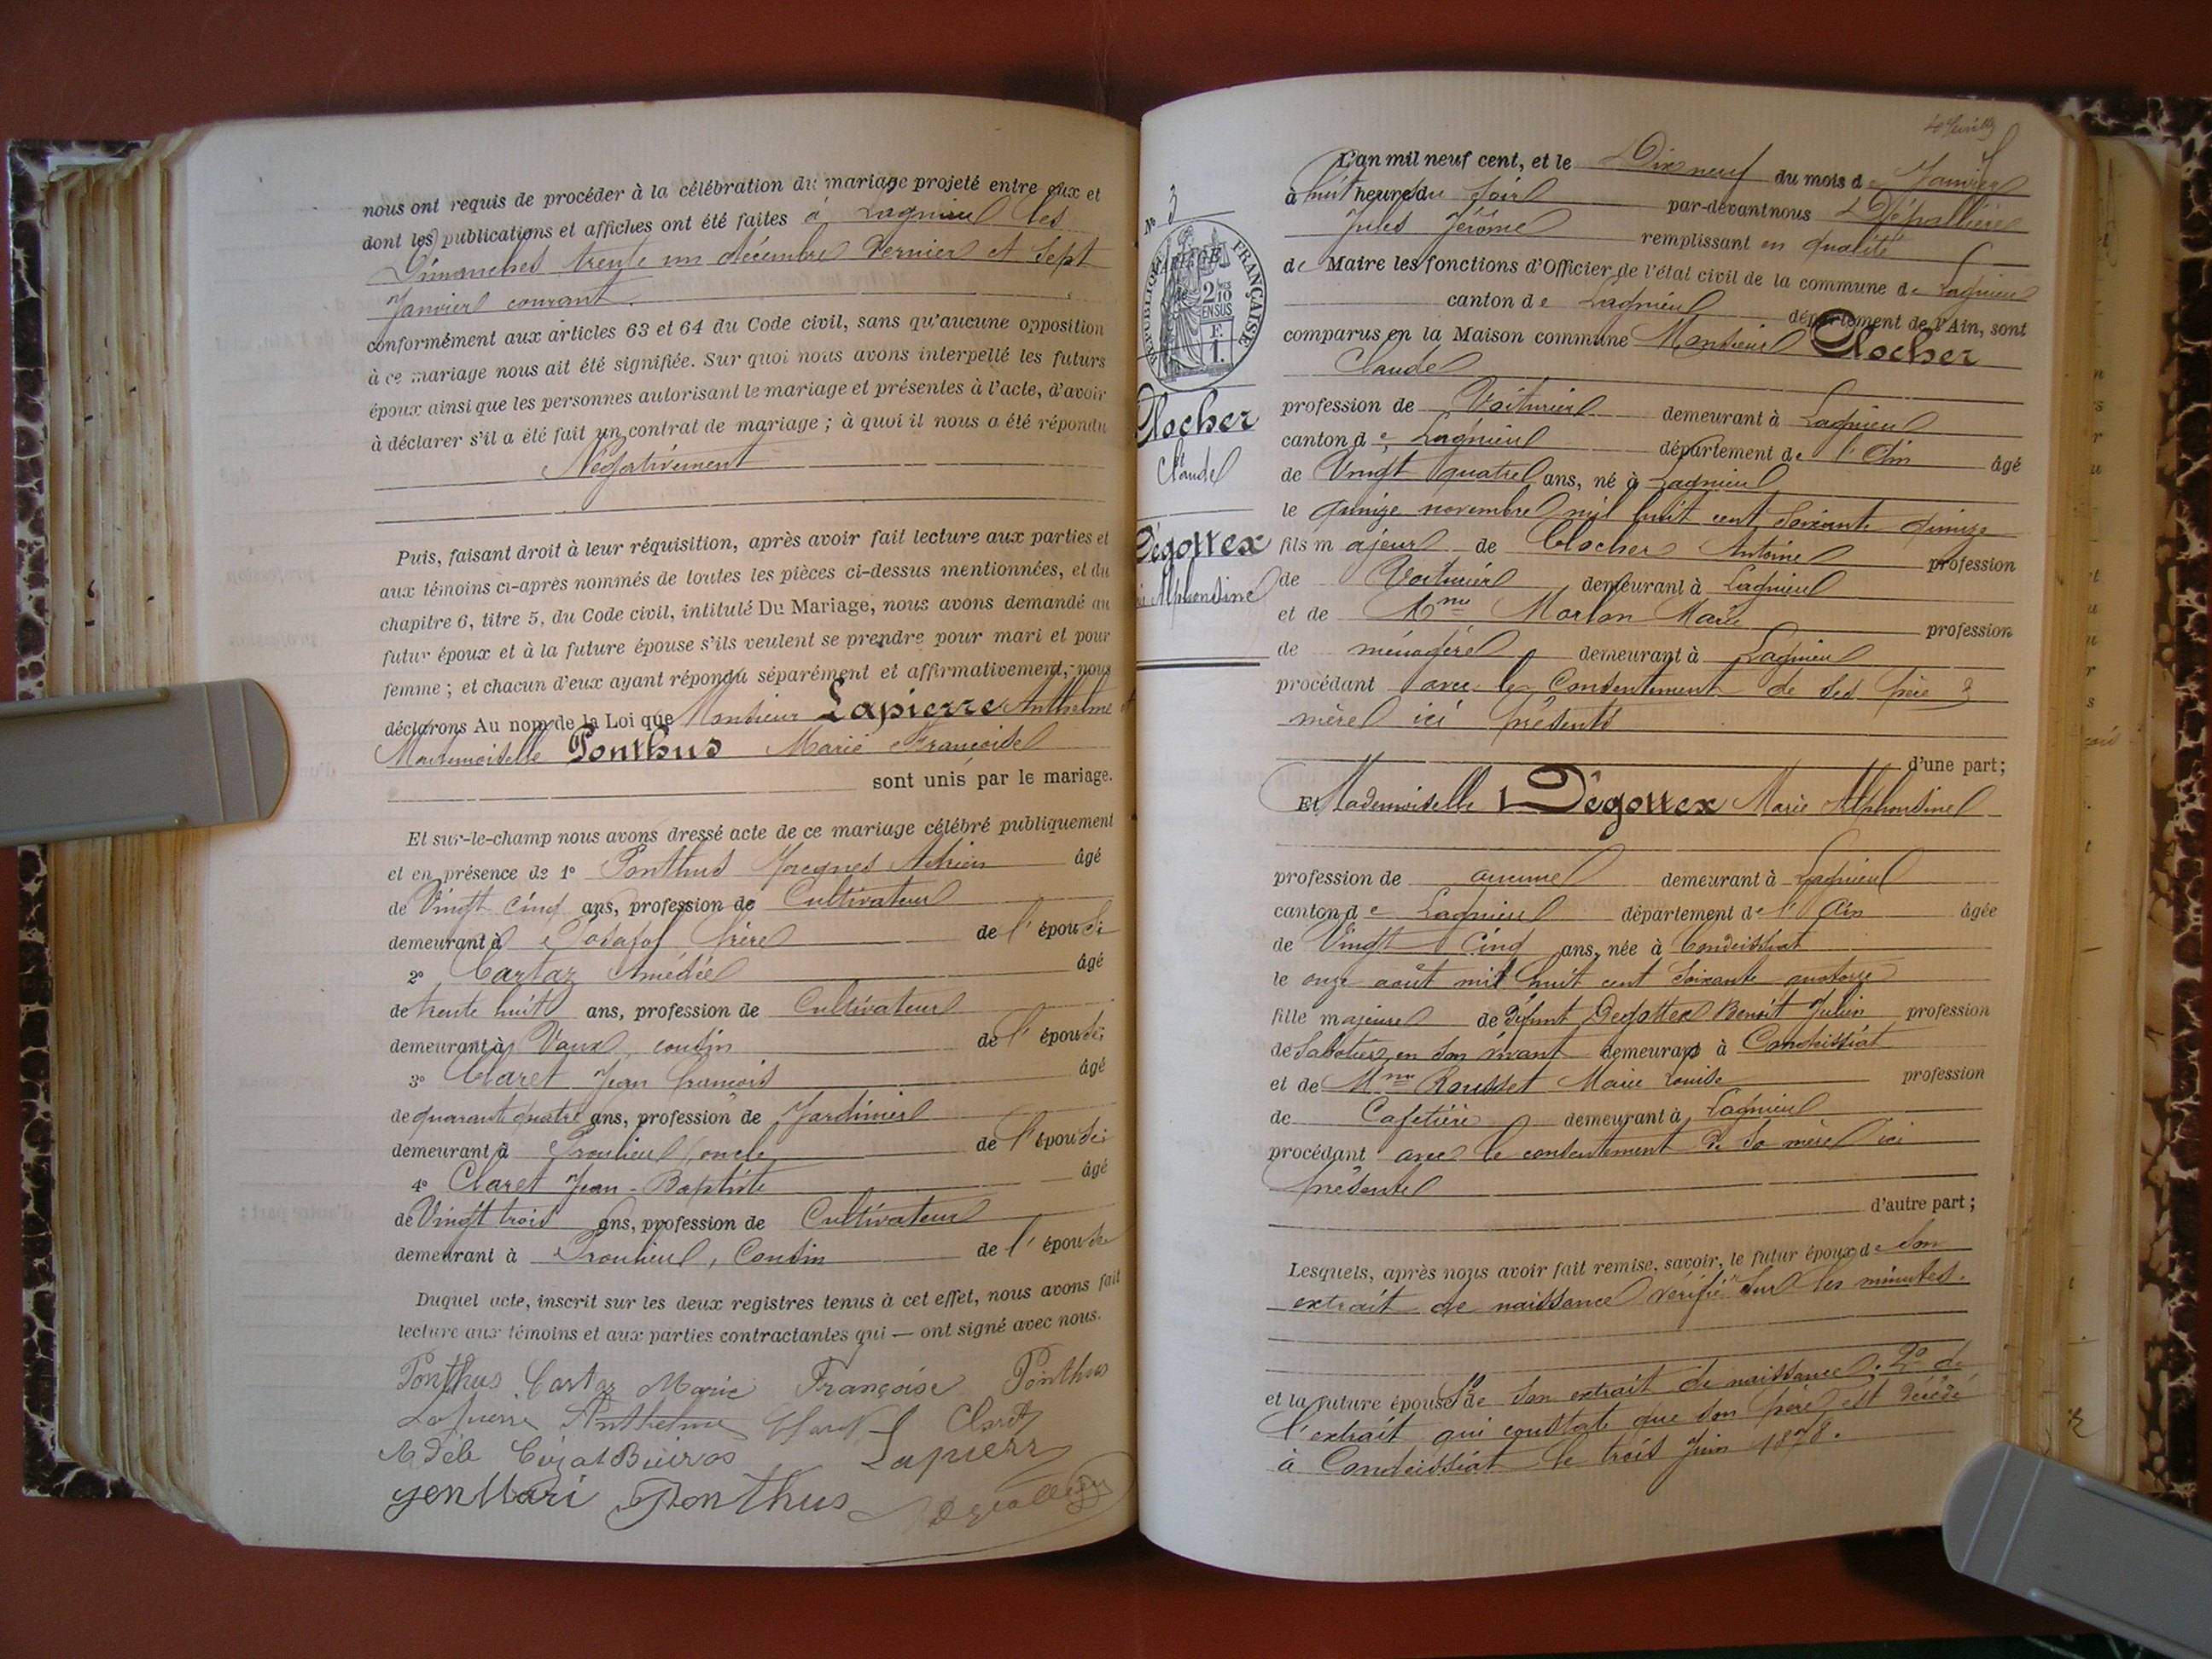 nous ont requis de procéder à la célébration du mariage projeté entre eux et
dont les publications et affiches ont été faites à Lagnieu les
Dimanches trente un décembre dernier et sept
Janvier courant.
conformément aux articles 63 et 64 du Code civil, sans qu'aucune opposition
à ce mariage nous ait été signifiée. Sur quoi nous avons interpellé les futurs
époux ainsi que les personnes autorisant le mariage et présentes à l'acte, d'avoir
à déclarer s'il a été fait un contrat de mariage ; à quoi il nous a été répondu
Négativement
Puis, faisant droit à leur réquisition, après avoir fait lecture aux parties et
aux témoins ci-après nommés de toutes les pièces ci-dessus mentionnées, et du
chapitre 6, titre 5, du Code civil, intitulé Du Mariage, nous avons demandé au
futur époux et à la future épouse s'ils veulent se prendre pour mari et pour
femme ; et chacun d'eux ayant répondu séparément et affirmativement, nous
déclarons Au nom de la Loi que Monsieur Lapierre Anthelme et
Mademoiselle Ponthus Marie Françoise
sont unis par le mariage.
Et sur-le-champ nous avons dressé acte de ce mariage célébré publiquement
et en présence de 1° Ponthus Adrien âgé
de Vingt cinq ans, profession de Cultivateur
demeurant à Posafol frère de l'épouse
2° Cartaz Amédée âgé
de trente huit ans, profession de Cultivateur
demeurant à Vaux, cousin de l'épouse;
3° Claret Jean François âgé
de quarante quatre ans, profession de Jardinier
demeurant à Proulieu, oncle de l'épouse;
4° Claret Jean-Baptiste âgé
de Vingt trois ans, profession de Cultivateur
demeurant à Proulieu, Cousin de l'épouse
Duquel acte, inscrit sur les deux registres tenus à cet effet, nous avons fait
lecture aux témoins et aux parties contractantes qui — ont signé avec nous.
Ponthus Cartaz Marie Françoise Ponthus
Lapierre Anthelme Claret
Adèle Lapierre
Ponthus
L'an mil neuf cent, et le Dix neuf du mois de Janvier
à huit heures du soir par-devant nous Dépallière
Jules Jérôme remplissant en qualité
de Maire les fonctions d'Officier de l'état civil de la commune de Lagnieu
canton de Lagnieu département de l'Ain, sont
comparus en la Maison commune Monsieur Clocher
Claude
profession de Voiturier demeurant à Lagnieu
canton de Lagnieu département de l'Ain âgé
de Vingt quatre ans, né à Lagnieu
le quinze novembre mil huit cent soixante quinze
fils majeur de Clocher Antoine profession
de Voiturier demeurant à Lagnieu
et de Mme Morlon Marie profession
de ménagère demeurant à Lagnieu
procédant avec le Consentement de ses père &
mère ici présents
d'une part;
Et Mademoiselle Dégottex Marie Alphonsine
profession de aucune demeurant à Lagnieu
canton de Lagnieu département de l'Ain âgée
de Vingt Cinq ans, née à Condeissiat
le onze août mil huit cent soixante quatorze
fille majeure de défunt Degottex Benoit Julien profession
de Sabotier en son vivant demeurant à Condeissiat
et de Mme Rousset Marie Louise profession
de Cafetière demeurant à Lagnieu
procédant avec le consentement de sa mère ici
présente
d'autre part;
Lesquels, après nous avoir fait remise, savoir, le futur époux de son
extrait de naissance vérifié sur les minutes.
et la future épouse 1° de son extrait de naissance; 2° de
l'extrait qui constate que son père est décédé
à Condeissiat le trois Juin 1878.
N° 3
RÉPUBLIQUE FRANÇAISE
2 10
EN SUS
F.
1.
Clocher
Claude
Dégottex
Alphonsine